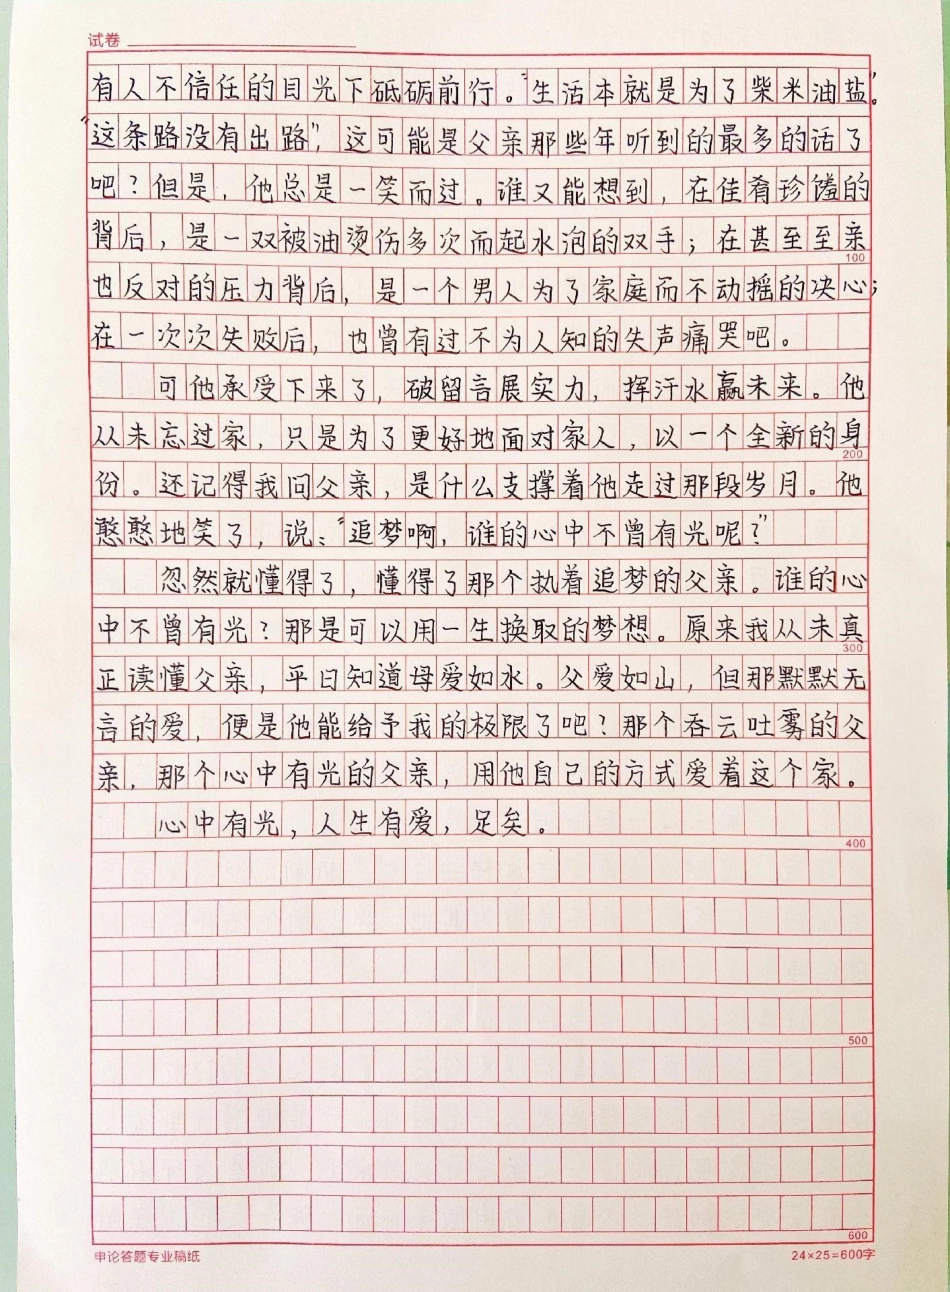 试卷
有人不信任的目光下砥砺前行。“生活本就是为了柴米油盐”。
“这条路没有出路”，这可能是父亲那些年听到的最多的话了
吧？但是，他总是一笑而过。谁又能想到，在佳肴珍馐的
背后，是一双被油烫伤多次而起水泡的双手；在甚至至亲
100
也反对的压力背后，是一个男人为了家庭而不动摇的决心；
在一次次失败后，也曾有过不为人知的失声痛哭吧。
可他承受下来了，破留言展实力，挥汗水赢未来。他
从未忘过家，只是为了更好地面对家人，以一个全新的身
200
份。还记得我问父亲，是什么支撑着他走过那段岁月。他
憨憨地笑了，说：“追梦啊，谁的心中不曾有光呢？”
忽然就懂得了，懂得了那个执着追梦的父亲。谁的心
中不曾有光？那是可以用一生换取的梦想。原来我从未真
300
正读懂父亲，平日知道母爱如水。父爱如山，但那默默无
言的爱，便是他能给予我的极限了吧？那个吞云吐雾的父
亲，那个心中有光的父亲，用他自己的方式爱着这个家。
心中有光，人生有爱，足矣。
400
500
600
申论答题专业稿纸
24×25=600字